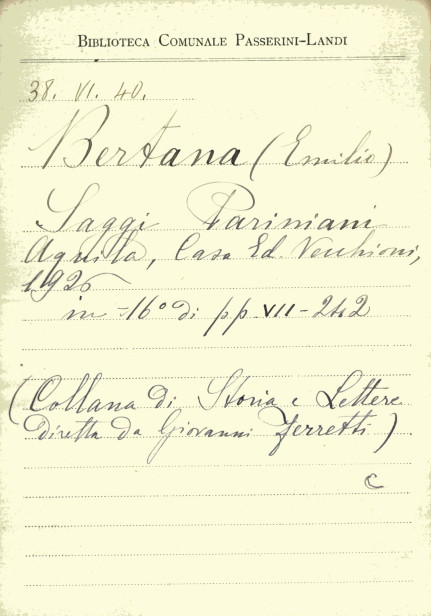 BIBLIOTECA COMUNALE PASSERINI-LANDI
38. VI. 40.
Bertana (Emilio)
Saggi Pariniani
Aquila, Casa Ed. Vecchioni,
1926
in -16° di pp. VII - 242
(Collana di Storia e Lettere
diretta da Giovanni Ferretti)
C